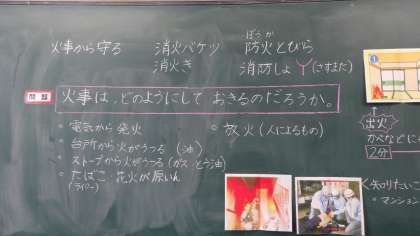 火事から守る
消火バケツ
消火き
ぼうか
防火とびら
消防しょ Y(さすまた)
問題
火事は、どのようにしておきるのだろうか。
◦ 電気から発火
◦ 台所から火がうつる (油)
◦ ストーブから火がうつる(ガス とう油)
◦ たばこ 花火が原いん
(ライター)
◦ 放火(人によるもの)
1
出火
かべなどに
2分
<知りたいこ
◦ マンション